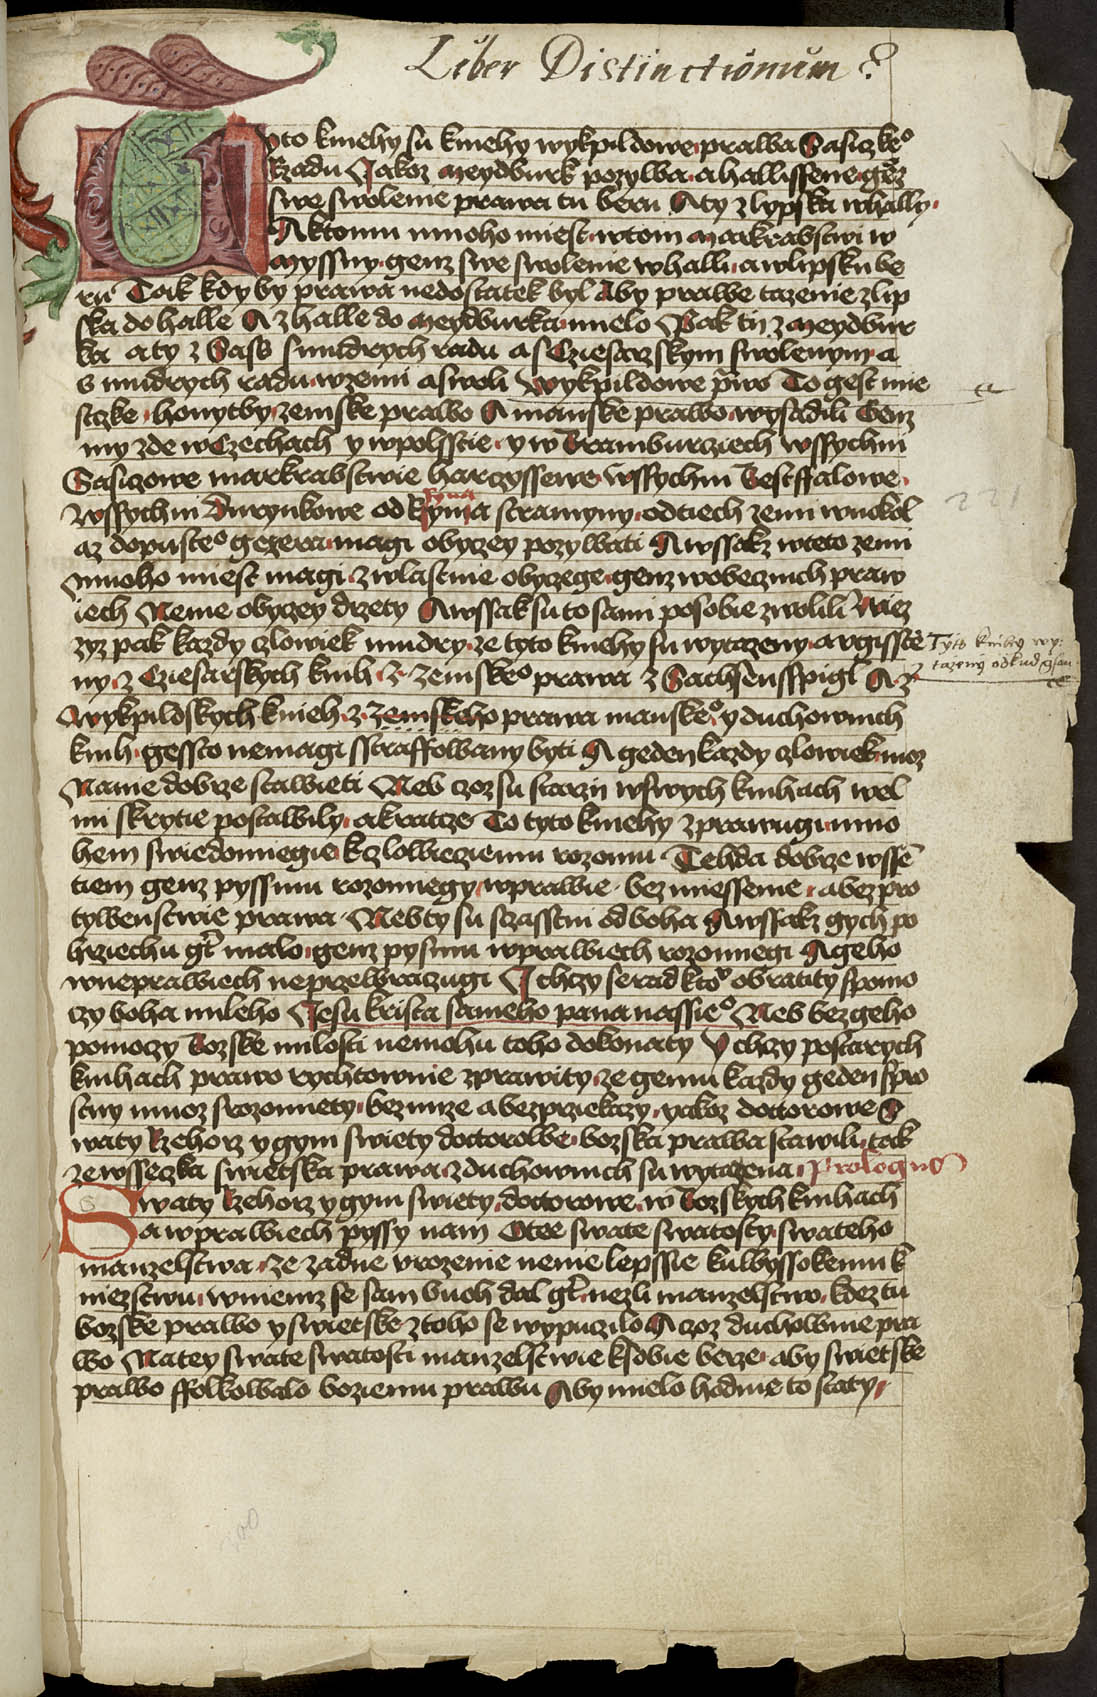 Liber Distinctionum ?
Tyto kniehy su kniehy wykpildowe prawa Sasiczkeo
Rzadu Jakoz Meydburk pozywa a hallissene gez
swe swolenie prawa tu beru A ty z lypska w hally
A k tomu mnoho miest w tom Markrabstwi w
Myssny genz swe swolenie w halli a w lipsku be
ru Tak kdy by prawa nedostatek byl Aby prawe tazenie z lip
ska do halle A z halle do Meydburka mielo Pak tij z Meydbur
ka a ty z Sass s mudrych radu a s Cziesarzskym swolenym a
s mudrych radu w zemi a swoli wykpildowe prwo To gest mie
stzke honytby zemske prawo A manske prawo wysadili Genz
my zde w Czechach y w polsstie y w Bramburziech wssychni
Sasiczowe markrabstwie harczyssewe wssychni Vestffalowe
z wssychni Durynkowe od Ryma stranyny od tiech zemi wuokol
az do pusteo gezera magi obyczey pozywati A wssakz w teto zemi
mnoho miest magi z wlastnie obyczege genz w obecznich praw
iech Neme obyczey drzety A wssak su to sami po sobie zwolili Wiez
zyz pak kazdy czlowiek mudry ze tyto kniehy su wytazeny a vgisste
ny z Cziesarskych knih z zemskeo prawa z Sachsensspigl A z
Tyto knihy wy:
tazeny odkud gsau
wykpildskych knieh z zemskeho prawa manskeo y duchownich
knih gessto nemagi sstraffowany byti A geden kazdy czlowiek muoz
Na nie dobrze stawieti Neb czoz su starzij w swych knihach wel
mi skrytie postawily a kratcze To tyto kniehy zprawugi mno
hem swiedomnegie k czlowieczemu rozomu Tehda dobrze wsse
tiem genz pyssmu rozomnegy w prawie bez miessenie a bez pro
tywenstwie prawa Neb ty su sczasstni od boha A wssakz gych po
hrziechu gt malo genz pysmu w prawiech rozomiegi A geho
w neprawiech ne przewraczugi J chczy se rad kto obratity s pomo
czy boha mileho Jesu krista sameho pana nassieo Neb bez geho
pomoczy Bozske milosti nemohu toho dokonaty Y chczy po starych
knihach prawo rychtownie zprawity ze gemu kazdy geden spro
stny muoz srozomiety bez mrze a bez prziekazy yakoz doctorowe S
waty Rzehorz y gym swiety doctorowe bozska prawa stawili tak
ze wsseczka swietska prawa z duchownich su wytazena Prologus
Swaty Rzehorz y gym swiety doctorowe w Bozskych knihach
a w prawiech pyssy nam Otcze swate swatosty swateho
manzelstwa ze zadne vrozenie nenie lepssie ku wyssokemu k
niezstwu w niemz se sam buoh dal gt nezli manzelstwo kdez tu
bozske prawo y swietske z toho se wypuczilo A czoz duchownie pra
wo Na tey swate swatosti manzelstwie k sobie berze aby swietske
prawo ffolkowalo boziemu prawu Aby mielo hodnie to staty